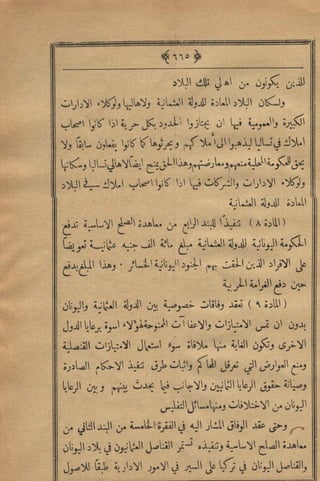 ﴿ ٦٦٥ ﴾
للذين يكونون من اهالي تلك البلاد
ولسكان البلاد المعادة للدولة العثمانية ولاهاليها ولوكلاء الادارات
الكبيرة والعمومية فيها ان يجتازوا الحدود بكل حرية اذا كانوا اصحاب
املاك في تساليا ليذهبوا الى أملاكهم ويحرثوها كما كانوا يفعلون سابقاً ولا
يحق للحكومة المحلية منعهم ومعارضتهم وهذا الحق يمنح ايضاً لاهالي تساليا وسكانها
ولوكلاء الادارات والشركات فيها اذا كانوا اصحاب املاك في البلاد
المعادة للدولة العثمانية
(المادة ٨) تنفيذاً للبند الرابع من معاهدة الصلح الاساسية تدفع
الحكومة اليونانية للدولة العثمانية مبلغ مائة الف جنيه عثمانية تعويضاً
على الافراد الذين الحقت بهم الجنود اليونانية الخسائر. وهذا المبلغ يدفع
حين دفع الغرامة الحربية
(المادة ٩) تعقد وفاقات خصوصية بين الدولة العثمانية واليونان
بدون ان تمس الامتيازات والاعفاآت الممنوحة لهؤلاء اسوة برعايا الدول
الاخرى وتكون الغاية منها ملافاة سوء استعمال الامتيازات القنصلية
ومنع العوارض التي تعرقل المحاكم واثبات طرق تنفيذ الاحكام الصادرة
وصيانة حقوق الرعايا العثمانيين والاجانب فيما يحدث بينهم وبين الرعايا
اليونان من الاختلافات ومنها مسائل التفليس
وحتى عقد الوفاق المشار اليه في الفقرة الخامسة من البند الثاني من
معاهدة الصلح الاساسية وتنفيذه تستمر القناصل العثمانيون في بلاد اليونان
والقناصل اليونان في تركيا على السير في الامور الادارية طبقاً للاصول